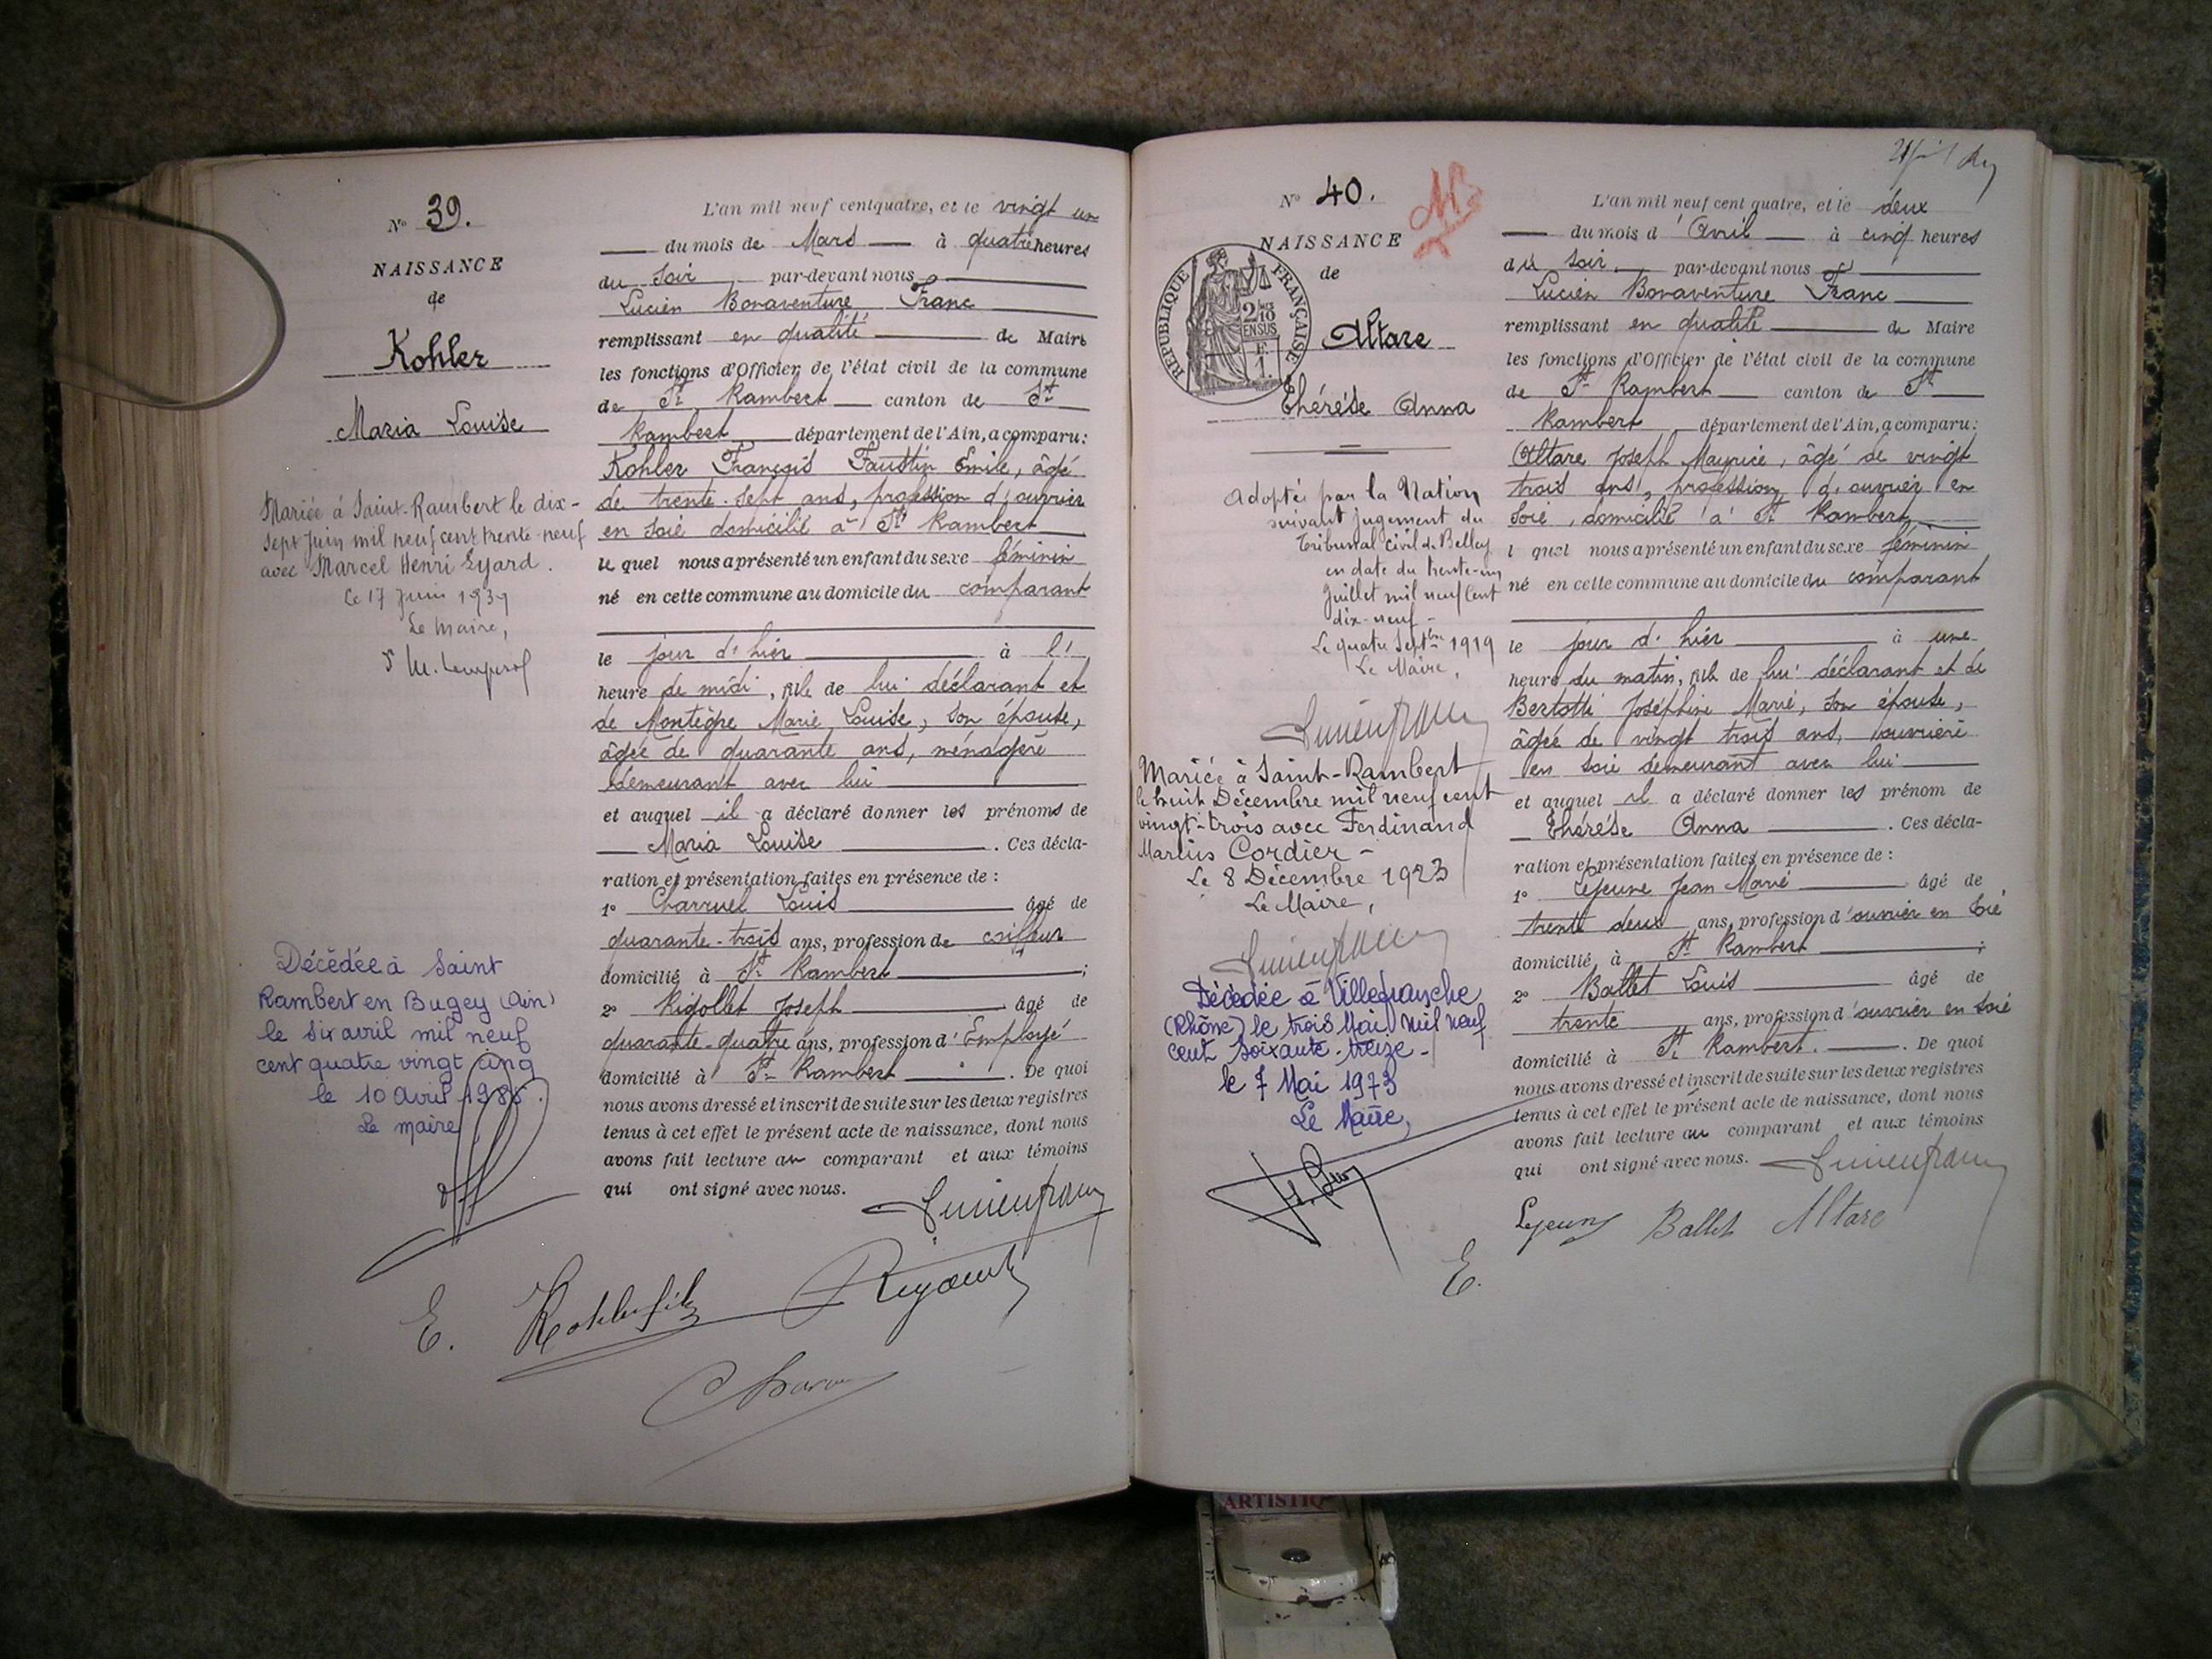 N° 39.
NAISSANCE
de
Kohler
Maria Louise
Mariée à Saint-Rambert le dix-
sept Juin mil neuf cent trente-neuf
avec Marcel Henri Eyard.
Le 17 Juin 1939
Le Maire,
Décédée à Saint
Rambert en Bugey (Ain)
le six avril mil neuf
cent quatre vingt cinq
le 10 Avril 1985.
Le maire
L'an mil neuf cent quatre, et le vingt un
du mois de Mars à quatre heures
du soir par-devant nous
Lucien Bonaventure Franc
remplissant en qualité de Maire
les fonctions d'Officier de l'état civil de la commune
de St Rambert canton de St
Rambert département de l'Ain, a comparu:
Kohler François Faustin Emile, âgé
de trente-sept ans, profession d'ouvrier
en soie domicilié à St Rambert
le quel nous a présenté un enfant du sexe féminin
né en cette commune au domicile du comparant
le jour d'hier à l'
heure de midi, fille de lui déclarant et
de Montègre Marie Louise, son épouse,
âgée de quarante ans, ménagère
demeurant avec lui
et auquel il a déclaré donner les prénoms de
Maria Louise. Ces décla-
ration et présentation faites en présence de :
1° Charruel Louis âgé de
quarante-trois ans, profession de coiffeur
domicilié à St Rambert ;
2° Rigollet Joseph âgé de
quarante-quatre ans, profession d'Employé
domicilié à St Rambert. De quoi
nous avons dressé et inscrit de suite sur les deux registres
tenus à cet effet le présent acte de naissance, dont nous
avons fait lecture au comparant et aux témoins
qui ont signé avec nous.
Lucien Franc
E. Kohler fils
N° 40.
NAISSANCE
de
RÉPUBLIQUE FRANÇAISE
2/10
EN SUS
E.
1.
Altare
Thérèse Anna
Adoptée par la Nation
suivant jugement du
Tribunal civil de Belley
en date du trente-un
Juillet mil neuf cent
dix-neuf -
Le quatre Septbre 1919
Le Maire,
Lucien Franc
Mariée à Saint-Rambert
le huit Décembre mil neuf cent
vingt-trois avec Ferdinand
Marius Cordier -
Le 8 Décembre 1923
Le Maire,
Lucien Franc
Décédée à Villefranche
(Rhône) le trois Mai mil neuf
cent soixante-treize -
le 7 Mai 1973
Le Maire,
L'an mil neuf cent quatre, et le deux
du mois d'Avril à cinq heures
du soir par-devant nous
Lucien Bonaventure Franc
remplissant en qualité de Maire
les fonctions d'Officier de l'état civil de la commune
de St Rambert canton de St
Rambert département de l'Ain, a comparu:
Altare Joseph Maurice, âgé de vingt
trois ans, profession d'ouvrier en
soie, domicilié à St Rambert
l quel nous a présenté un enfant du sexe féminin
né en cette commune au domicile du comparant
le jour d'hier à une
heure du matin, fille de lui déclarant et de
Bertotti Joséphine Marie, son épouse,
âgée de vingt trois ans, ouvrière
en soie demeurant avec lui
et auquel il a déclaré donner les prénom de
Thérèse Anna. Ces décla-
ration et présentation faites en présence de :
1° Lejeune Jean Marie âgé de
trente deux ans, profession d'ouvrier en soie
domicilié à St Rambert ;
2° Ballet Louis âgé de
trente ans, profession d'ouvrier en soie
domicilié à St Rambert. De quoi
nous avons dressé et inscrit de suite sur les deux registres
tenus à cet effet le présent acte de naissance, dont nous
avons fait lecture au comparant et aux témoins
qui ont signé avec nous. Lucien Franc
Lejeune Ballet Altare
E.
ARTISTIQ